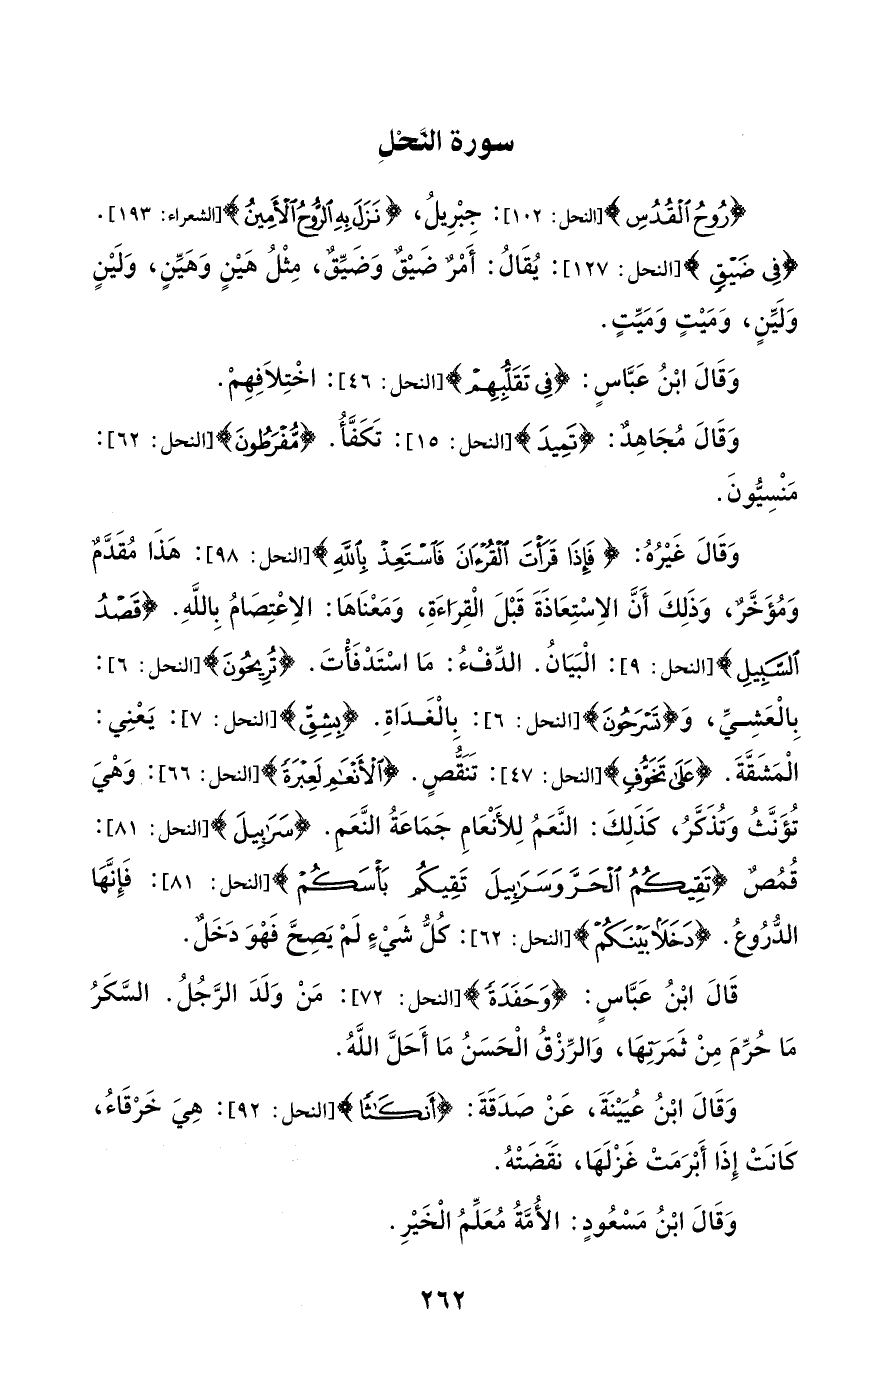 سورة النَّحْلِ
﴿رُوحُ ٱلْقُدُسِ﴾ [النحل: ١٠٢]: جِبْرِيلُ، ﴿نَزَلَ بِهِ ٱلرُّوحُ ٱلْأَمِينُ﴾ [الشعراء: ١٩٣].
﴿فِى ضَيْقٍ﴾ [النحل: ١٢٧]: يُقَالُ: أَمْرٌ ضَيْقٌ وَضَيِّقٌ، مِثْلُ هَيْنٍ وَهَيِّنٍ، وَلَيْنٍ
وَلَيِّنٍ، وَمَيْتٍ وَمَيِّتٍ.
وَقَالَ ابْنُ عَبَّاسٍ: ﴿فِى تَقَلُّبِهِمْ﴾ [النحل: ٤٦]: اخْتِلَافِهِمْ.
وَقَالَ مُجَاهِدٌ: ﴿تَمِيدَ﴾ [النحل: ١٥]: تَكَفَّأُ. ﴿مُّفْرَطُونَ﴾ [النحل: ٦٢]:
مَنْسِيُّونَ.
وَقَالَ غَيْرُهُ: ﴿فَإِذَا قَرَأْتَ ٱلْقُرْءَانَ فَٱسْتَعِذْ بِٱللَّهِ﴾ [النحل: ٩٨]: هَذَا مُقَدَّمٌ
وَمُؤَخَّرٌ، وَذَلِكَ أَنَّ الِاسْتِعَاذَةَ قَبْلَ الْقِرَاءَةِ، وَمَعْنَاهَا: الِاعْتِصَامُ بِاللَّهِ. ﴿قَصْدُ
ٱلسَّبِيلِ﴾ [النحل: ٩]: الْبَيَانُ. الدِّفْءُ: مَا اسْتَدْفَأْتَ. ﴿تُرِيحُونَ﴾ [النحل: ٦]:
بِالْعَشِيِّ، وَ﴿تَسْرَحُونَ﴾ [النحل: ٦]: بِالْغَدَاةِ. ﴿بِشِقِّ﴾ [النحل: ٧]: يَعْنِي:
الْمَشَقَّةَ. ﴿عَلَىٰ تَخَوُّفٍ﴾ [النحل: ٤٧]: تَنَقُّصٍ. ﴿ٱلْأَنْعَٰمِ لَعِبْرَةً﴾ [النحل: ٦٦]: وَهْيَ
تُؤَنَّثُ وَتُذَكَّرُ، كَذَلِكَ: النَّعَمُ لِلأَنْعَامِ جَمَاعَةُ النَّعَمِ. ﴿سَرَٰبِيلَ﴾ [النحل: ٨١]:
قُمُصٌ ﴿تَقِيكُمُ ٱلْحَرَّ وَسَرَٰبِيلَ تَقِيكُم بَأْسَكُمْ﴾ [النحل: ٨١]: فَإِنَّهَا
الدُّرُوعُ. ﴿دَخَلًا بَيْنَكُمْ﴾ [النحل: ٦٢]: كُلُّ شَيْءٍ لَمْ يَصِحَّ فَهْوَ دَخَلٌ.
قَالَ ابْنُ عَبَّاسٍ: ﴿وَحَفَدَةً﴾ [النحل: ٧٢]: مَنْ وَلَدَ الرَّجُلُ. السَّكَرُ
مَا حُرِّمَ مِنْ ثَمَرَتِهَا، وَالرِّزْقُ الْحَسَنُ مَا أَحَلَّ اللَّهُ.
وَقَالَ ابْنُ عُيَيْنَةَ، عَنْ صَدَقَةَ: ﴿أَنكَٰثًا﴾ [النحل: ٩٢]: هِيَ خَرْقَاءُ،
كَانَتْ إِذَا أَبْرَمَتْ غَزْلَهَا، نَقَضَتْهُ.
وَقَالَ ابْنُ مَسْعُودٍ: الأُمَّةُ مُعَلِّمُ الْخَيْرِ.
٢٦٢